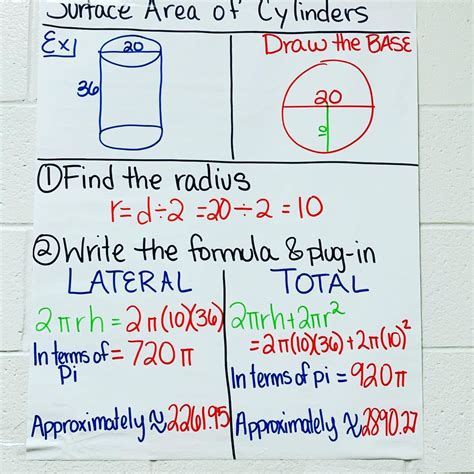 Surface Area of Cylinders
Ex 1
20
36
Draw the BASE
20
10
① Find the radius
r = d ÷ 2 = 20 ÷ 2 = 10
② Write the formula & plug-in
LATERAL
2πrh = 2π(10)(36)
In terms of Pi = 720π
Approximately ≈ 2261.95
TOTAL
2πrh + 2πr²
= 2π(10)(36) + 2π(10)²
In terms of pi = 920π
Approximately ≈ 2890.27